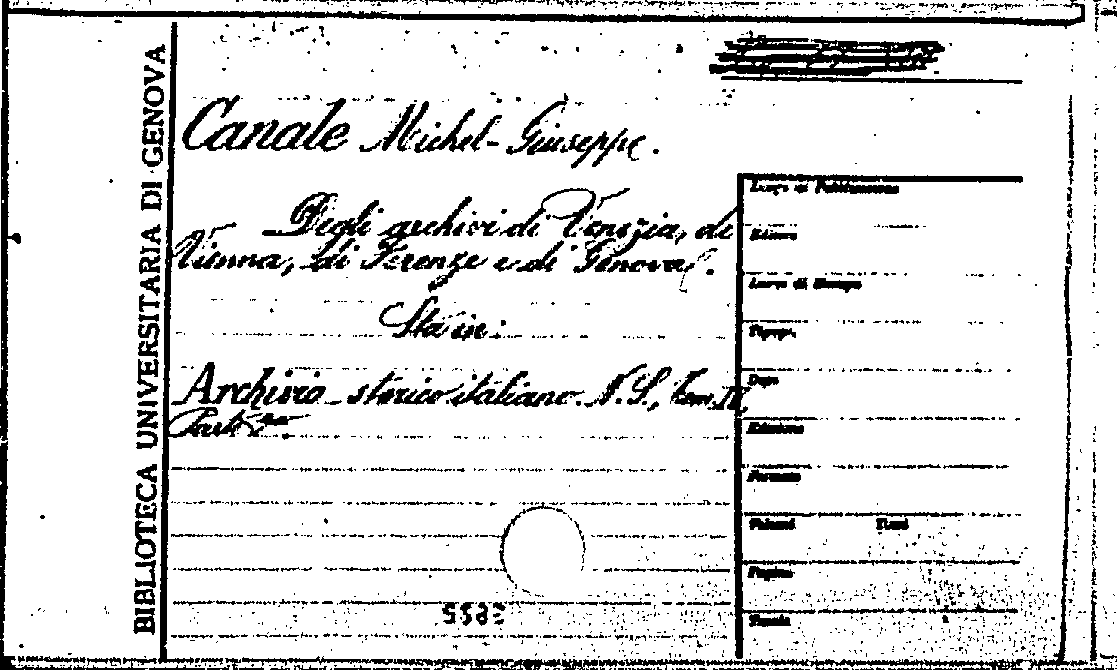 BIBLIOTECA UNIVERSITARIA DI GENOVA
Canale Michel-Giuseppe.
Degli archivi di Venezia, di
Vienna, di Firenze e di Genova.
Sta in:
Archivio storico italiano. N. S., Tom. IV,
Parte
Luogo di Pubblicazione
Editore
Luogo di Stampa
Tipogr.
Data
Edizione
Formato
Volumi Tomi
Pagine
Tavole